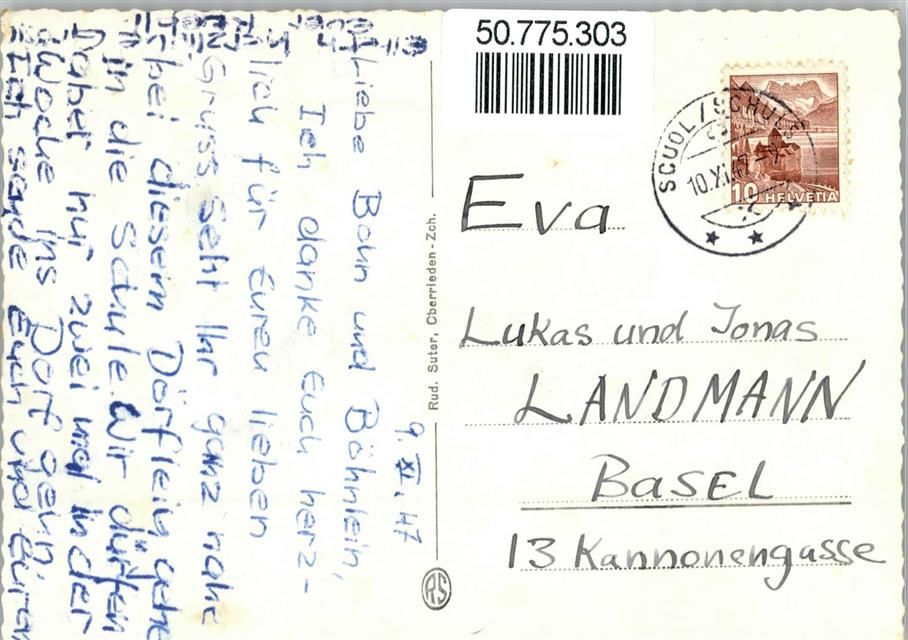 50.775.303
SCUOL / SCHULS
10.XI.47
10 HELVETIA
Eva
Lukas und Jonas
LANDMANN
BASEL
13 Kannonengasse
Rud. Suter, Oberrieden - Zch.
RS
9. XI. 47
Liebe Bohn und Böhnlein,
Ich danke Euch herz-
lich für Euren lieben
Gruss Seht Ihr ganz nahe
bei diesem Dörflein gehe
in die Schule. Wir dürfen
aber nur zwei mal in der
Woche ins Dorf gehn
Ich sende Euch und Euren